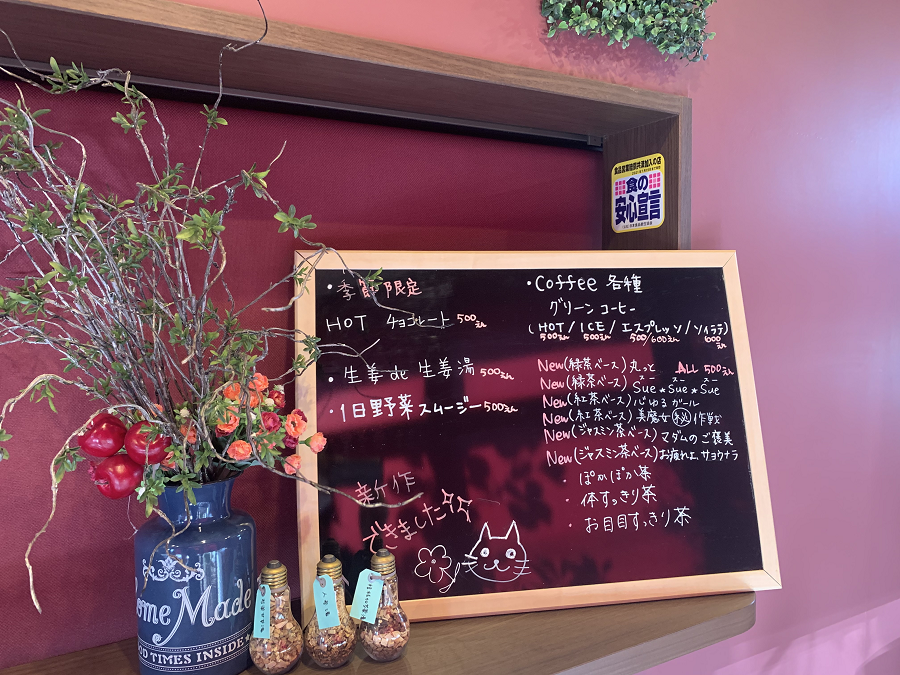 食品営業賠償共済加入の店
食の
安心宣言
・季節限定
HOT チョコレート 500えん
・生姜de生姜湯 500えん
・1日野菜スムージー 500えん
新作
できました
・Coffee 各種
グリーンコーヒー
(HOT/ICE/エスプレッソ/ソイラテ)
500えん 500えん 500/600えん 600えん
New(緑茶ベース)丸っと ALL 500えん
スー スー
New(緑茶ベース)Sue★Sue★Sue
New(紅茶ベース)心ゆるガール
New(紅茶ベース)美魔女㊙作戦
New(ジャスミン茶ベース)マダムのご褒美
New(ジャスミン茶ベース)お疲れェ、サヨウナラ
・ぽかぽか茶
・体すっきり茶
・お目目すっきり茶
ome Made
OD TIMES INSIDE